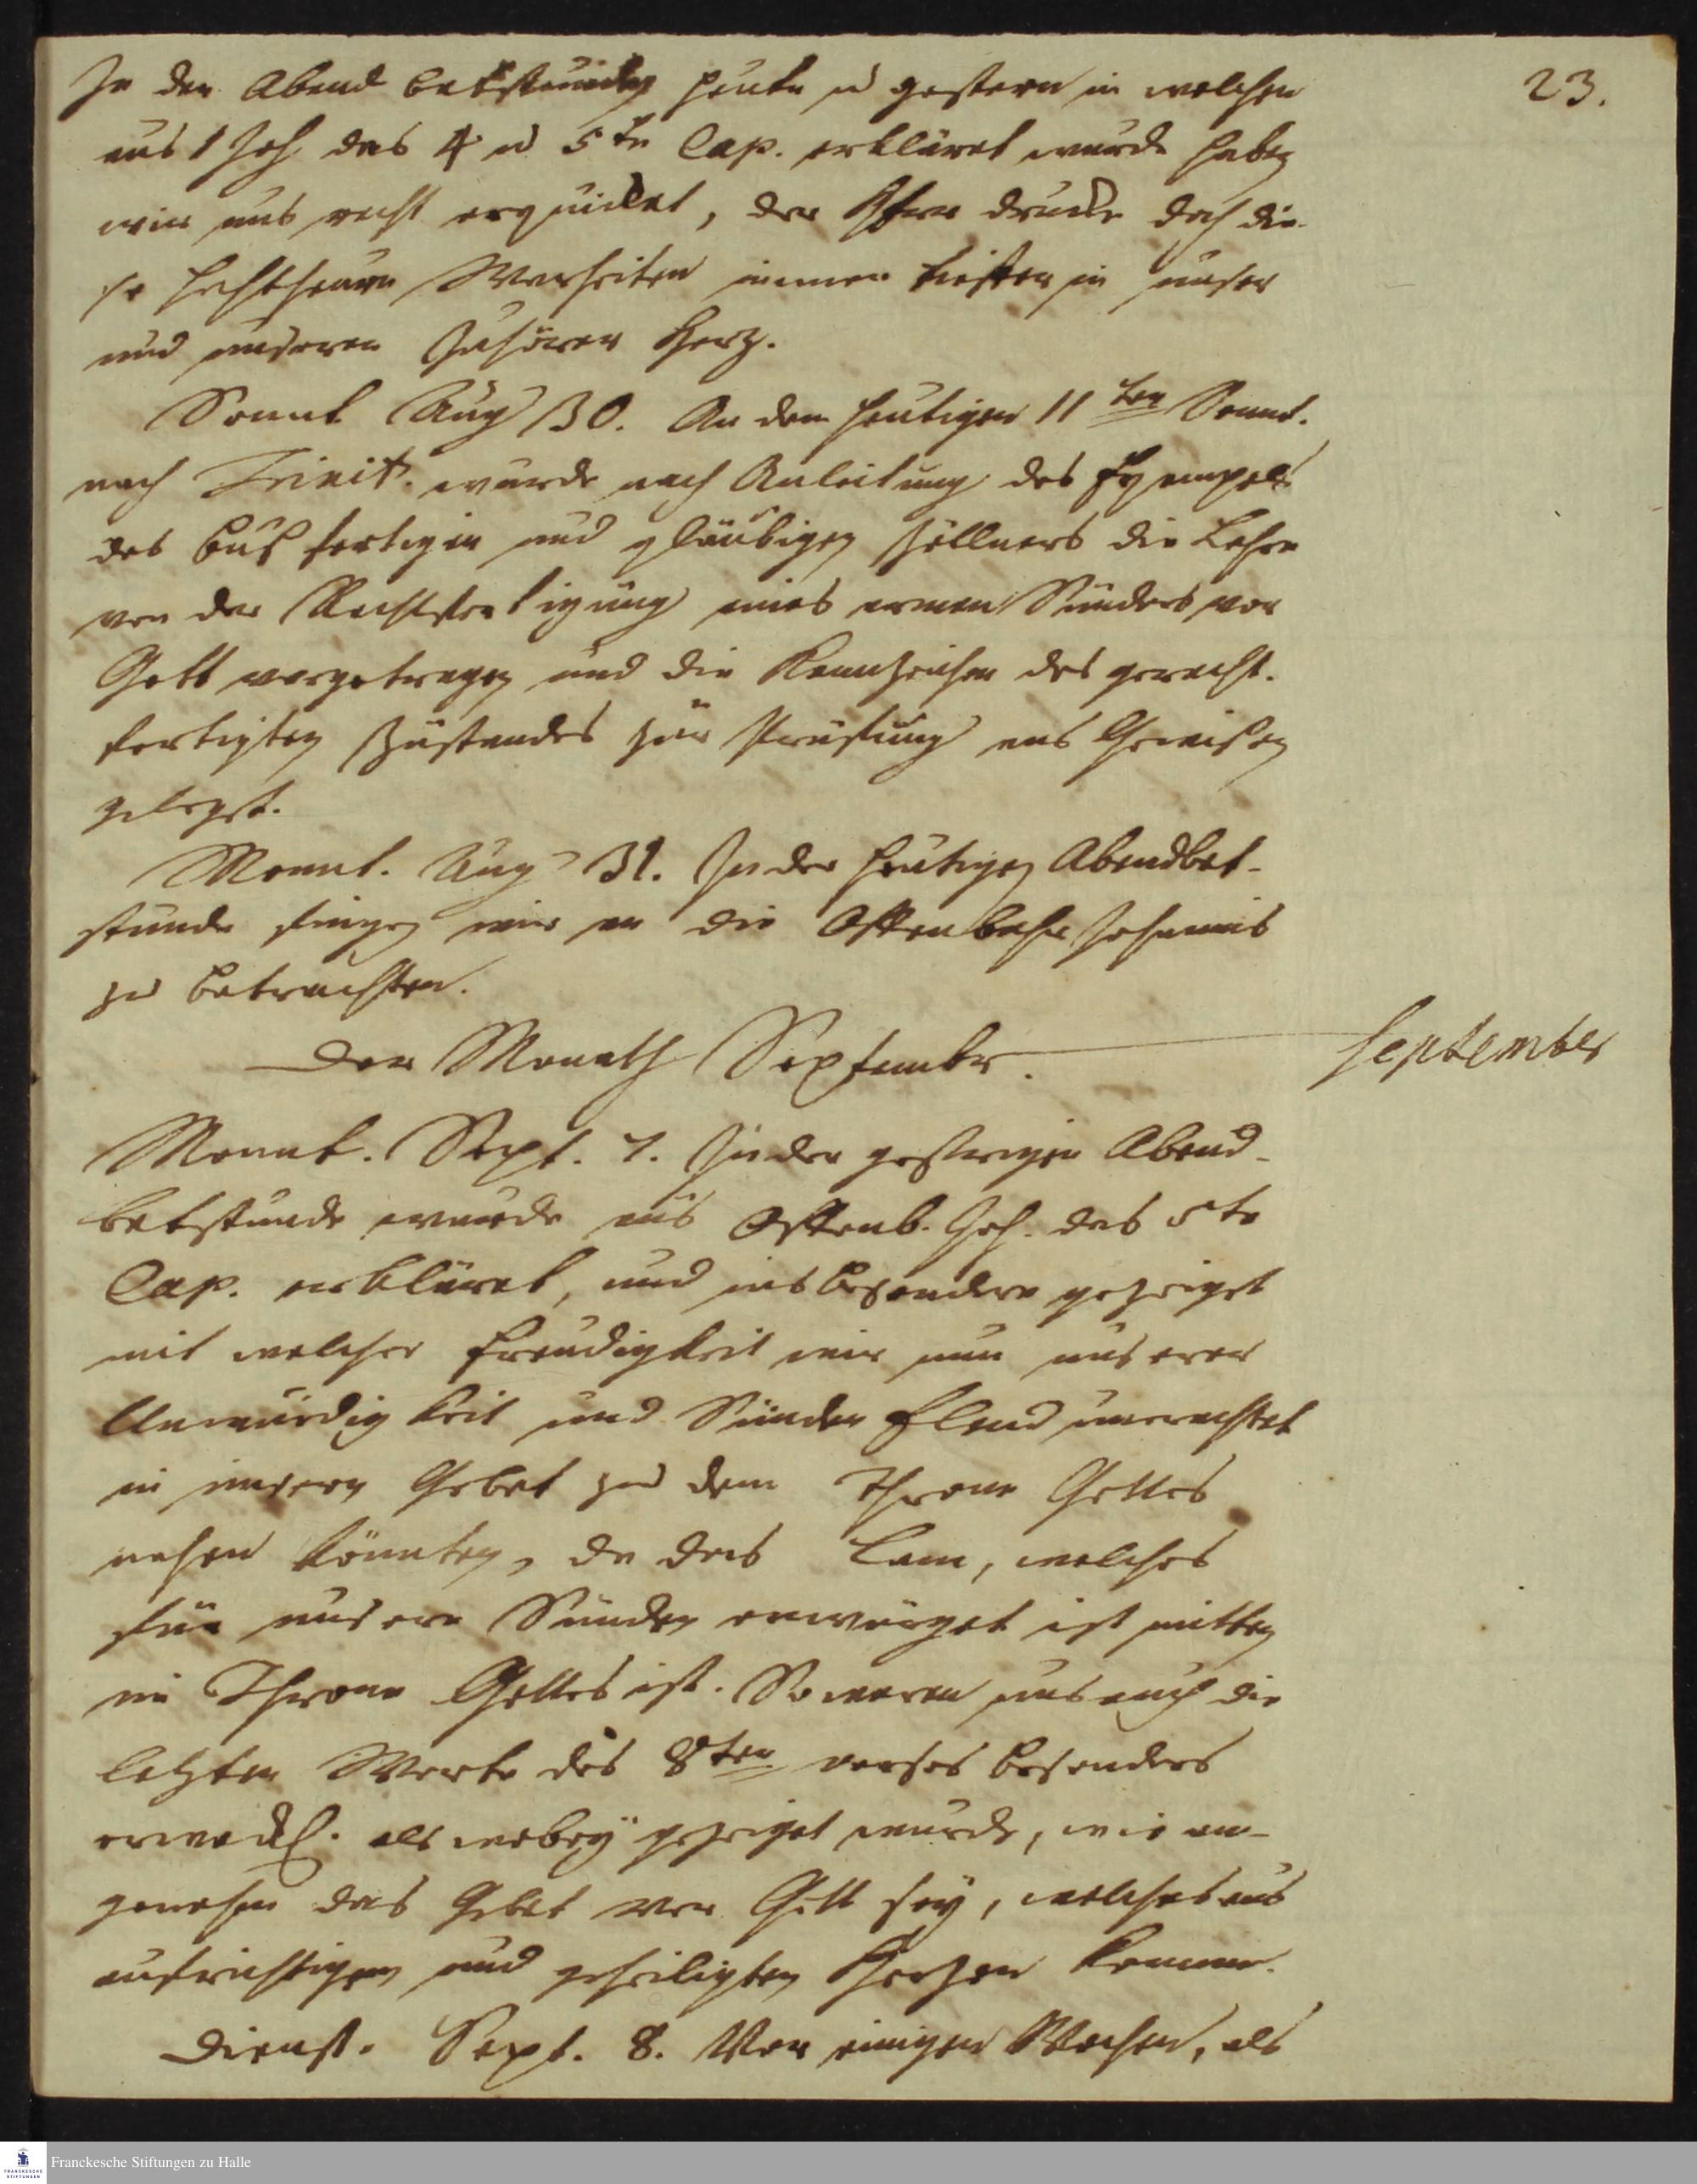 23.
In den Abend betstunden heute u gestern in welchen
aus 1 Joh das 4 u 5te Cap. erkläret wurde haben
wir uns recht erquicket, der Herr drucke doch die-
se hochtheuren Warheiten immer tieffer in unser
und unserer Zuhörer Herz.
Sonnt Aug 30. An dem heutigen 11ten Sonnt.
nach Trinit. wurde nach Anleitung des Exempels
des bußfertigen und gläubigen Zöllners die Lehre
von der Rechtfertigung eines armen Sünders vor
Gott vorgetragen und die Kennzeichen des gerecht-
fertigten Zustandes zur Prüfung ans Gewißen
gelegt.
Mont. Aug 31. In der heutigen Abendbet-
stunde fingen wir an die Offenbahr Johannis
zu betrachten.
Der Monath September.
September
Mont. Sept. 7. In der gestrigen Abend-
betstunde wurde aus Offenb. Joh. das 5te
Cap. erkläret, und insbesondere gezeiget
mit welcher Freudigkeit wir nun unserer
Unwürdigkeit und Sünden Elend unerachtet
in unsern Gebet zu dem Throne Gottes
nahen könnten, da das Lam, welches
für unsere Sünden erwürget ist mitten
im Throne Gottes ist. So waren uns auch die
letzten Worte des 8ten verses besonders
erweckl. als wobey gezeiget wurde, wie an-
genehm das Gebet vor Gott sey, welches aus
aufrichtigen und geheiligten Herzen komme.
Dienst. Sept. 8. Vor einigen Wochen, als
Franckesche Stiftungen zu Halle